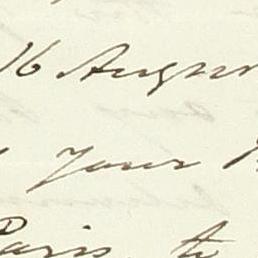 16 August
your
Paris to